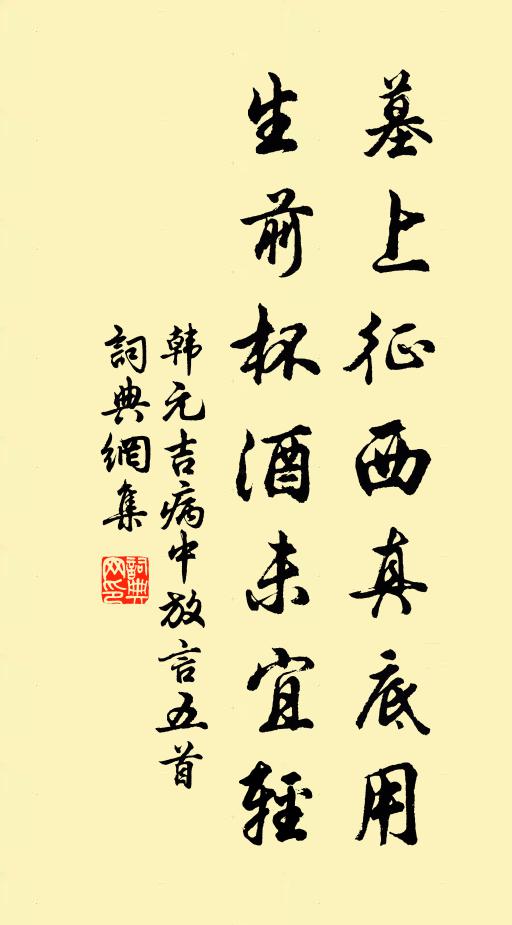 墓上征西真底用
生前杯酒未宜輕
韩元吉病中放言五首
詞典網集
詞典網印